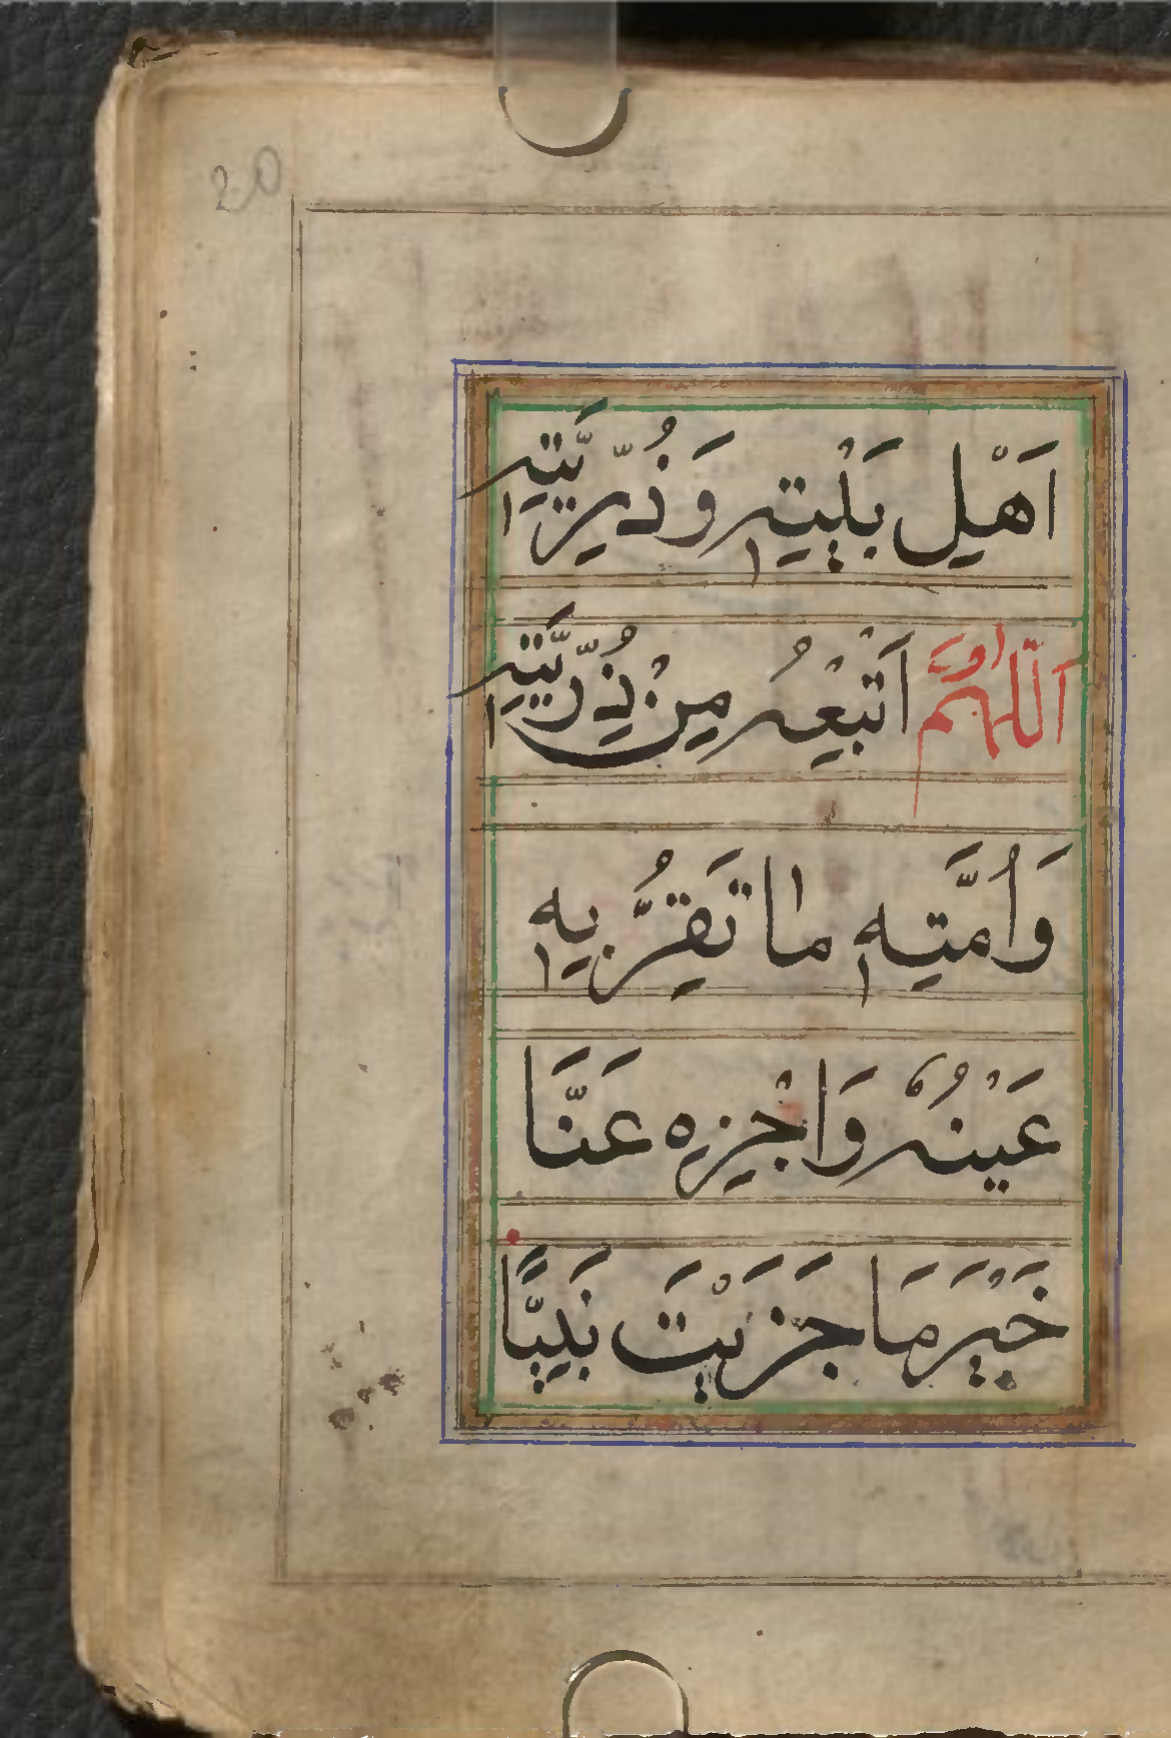 20
اَهْلِ بَيْتِهٖ وَذُرِّيَّتِهٖ
اَللّٰهُمَّ اَتْبِعْهُ مِنْ ذُرِّيَّتِهٖ
وَاُمَّتِهٖ مٰا تَقِرُّ بِهٖ
عَيْنُهُ وَاجْزِهِ عَنَّا
خَيْرَ مَا جَزَيْتَ نَبِيًّا